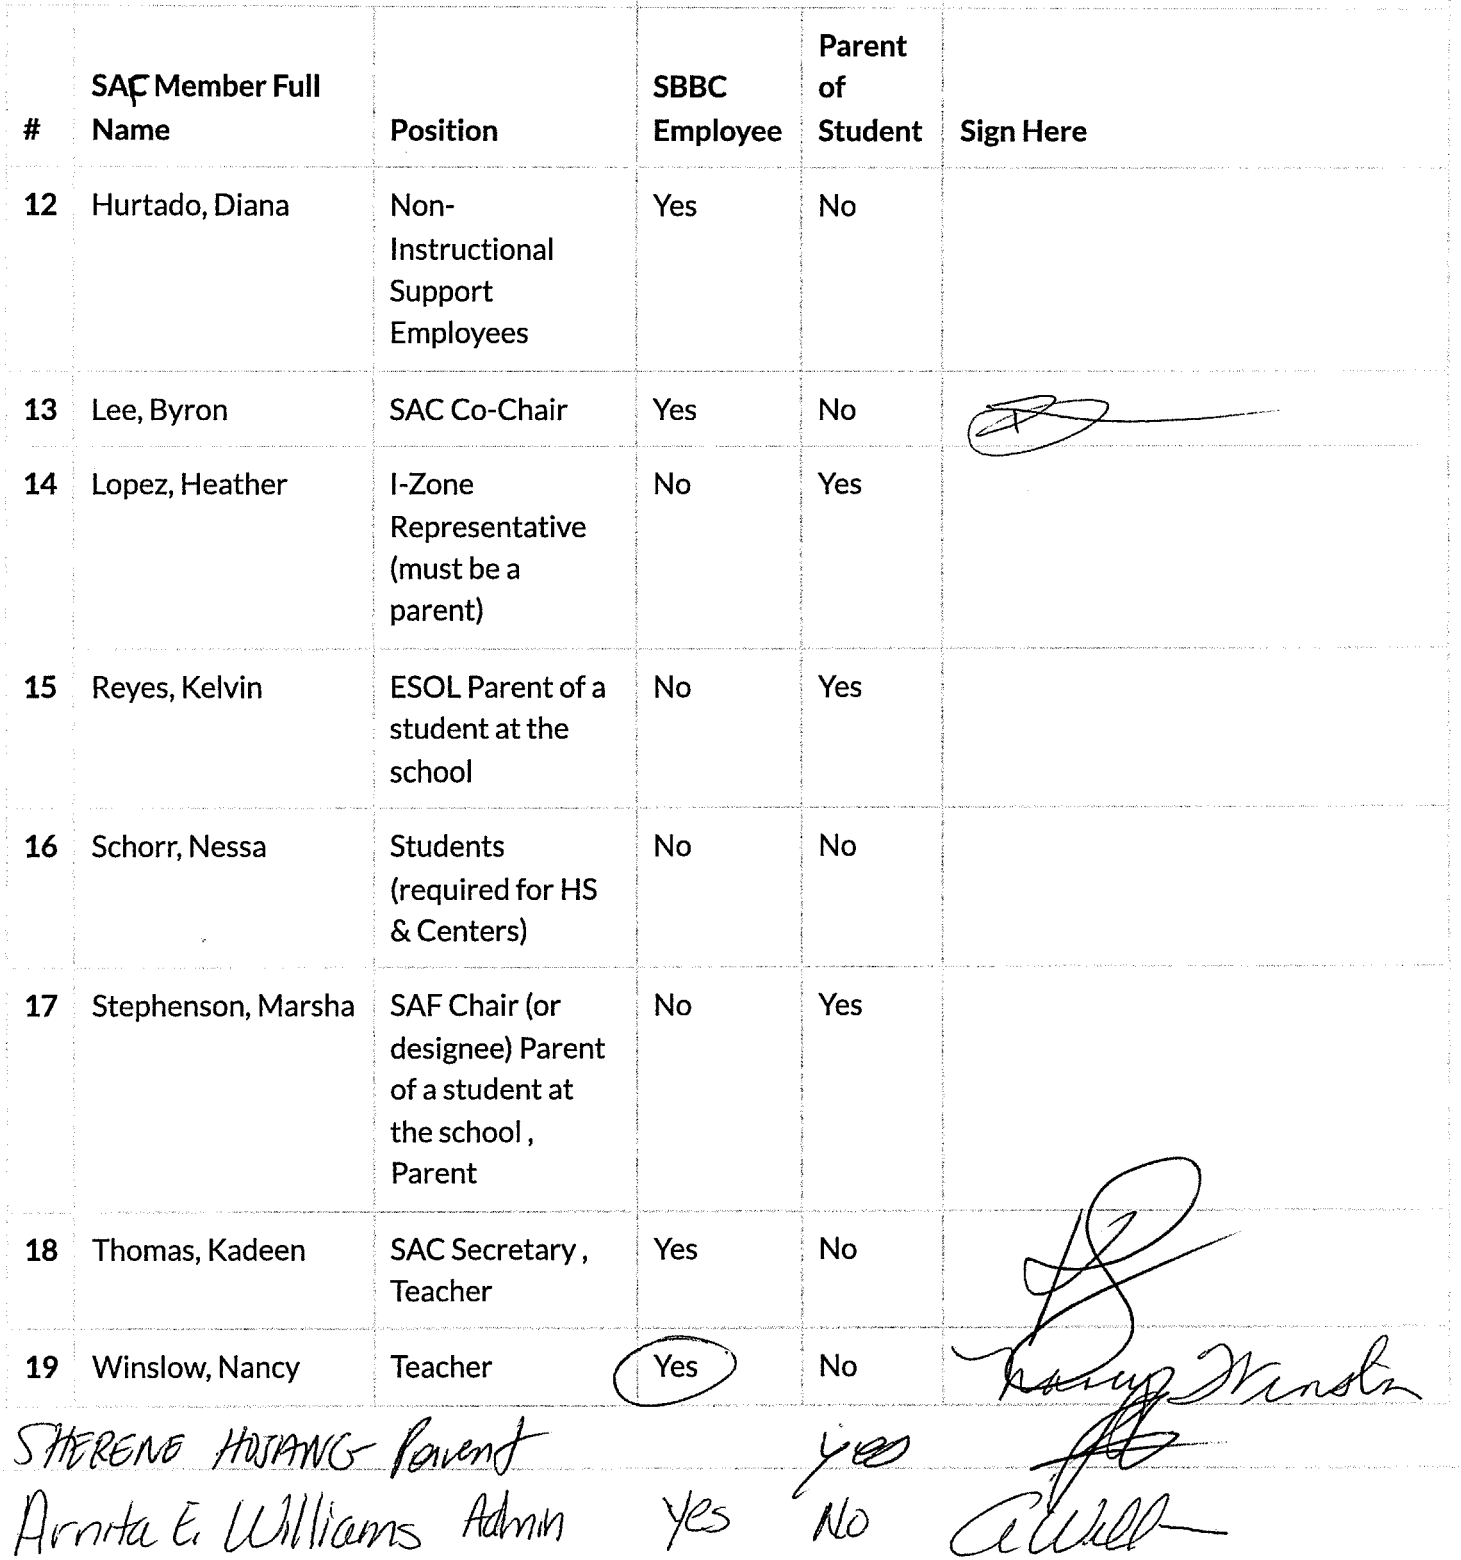 Parent
SAC Member Full SBBC of
# Name Position Employee Student Sign Here
12 Hurtado, Diana Non- Yes No
Instructional
Support
Employees
13 Lee, Byron SAC Co-Chair Yes No
14 Lopez, Heather I-Zone No Yes
Representative
(must be a
parent)
15 Reyes, Kelvin ESOL Parent of a No Yes
student at the
school
16 Schorr, Nessa Students No No
(required for HS
& Centers)
17 Stephenson, Marsha SAF Chair (or No Yes
designee) Parent
of a student at
the school ,
Parent
18 Thomas, Kadeen SAC Secretary , Yes No
Teacher
19 Winslow, Nancy Teacher Yes No Nancy Winslow
SHERENE Parent yes
Arnita E. Williams Admin Yes No